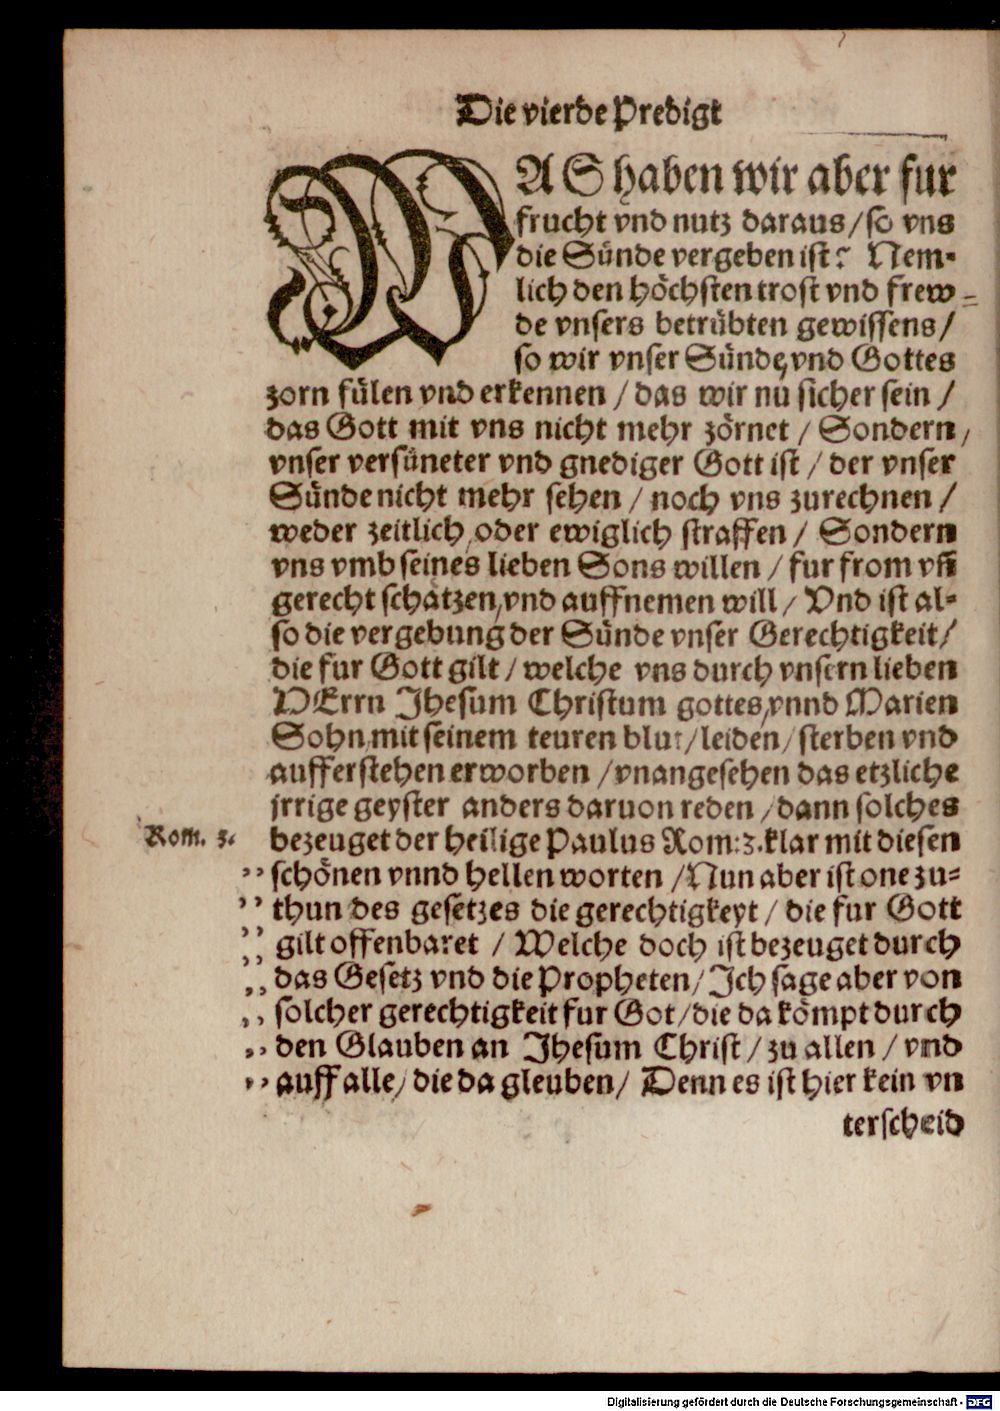 Die vierde Predigt
WAS haben wir aber fur
frucht vnd nutz daraus / so vns
die Sünde vergeben ist? Nem-
lich den höchsten trost vnd frew-
de vnsers betrübten gewissens /
so wir vnser Sünde, vnd Gottes
zorn fülen vnd erkennen / das wir nu sicher sein /
das Gott mit vns nicht mehr zörnet / Sondern,
vnser versüneter vnd gnediger Gott ist / der vnser
Sünde nicht mehr sehen / noch vns zurechnen /
weder zeitlich, oder ewiglich straffen / Sondern
vns vmb seines lieben Sons willen / fur from vn̄
gerecht schätzen, vnd auffnemen will / Vnd ist al-
so die vergebung der Sünde vnser Gerechtigkeit /
die fur Gott gilt / welche vns durch vnsern lieben
HErrn Jhesum Christum gottes, vnnd Marien
Sohn, mit seinem teuren blut / leiden / sterben vnd
aufferstehen erworben / vnangesehen das etzliche
jrrige geyster anders daruon reden / dann solches
Rom. 3. bezeuget der heilige Paulus Rom: 3. klar mit diesen
,, schönen vnnd hellen worten / Nun aber ist one zu-
,, thun des gesetzes die gerechtigkeyt / die fur Gott
,, gilt offenbaret / Welche doch ist bezeuget durch
,, das Gesetz vnd die Propheten / Jch sage aber von
,, solcher gerechtigkeit fur Got / die da kömpt durch
,, den Glauben an Jhesum Christ / zu allen / vnd
,, auff alle / die da gleuben / Denn es ist hier kein vn
terscheid
Digitalisierung gefördert durch die Deutsche Forschungsgemeinschaft - DFG